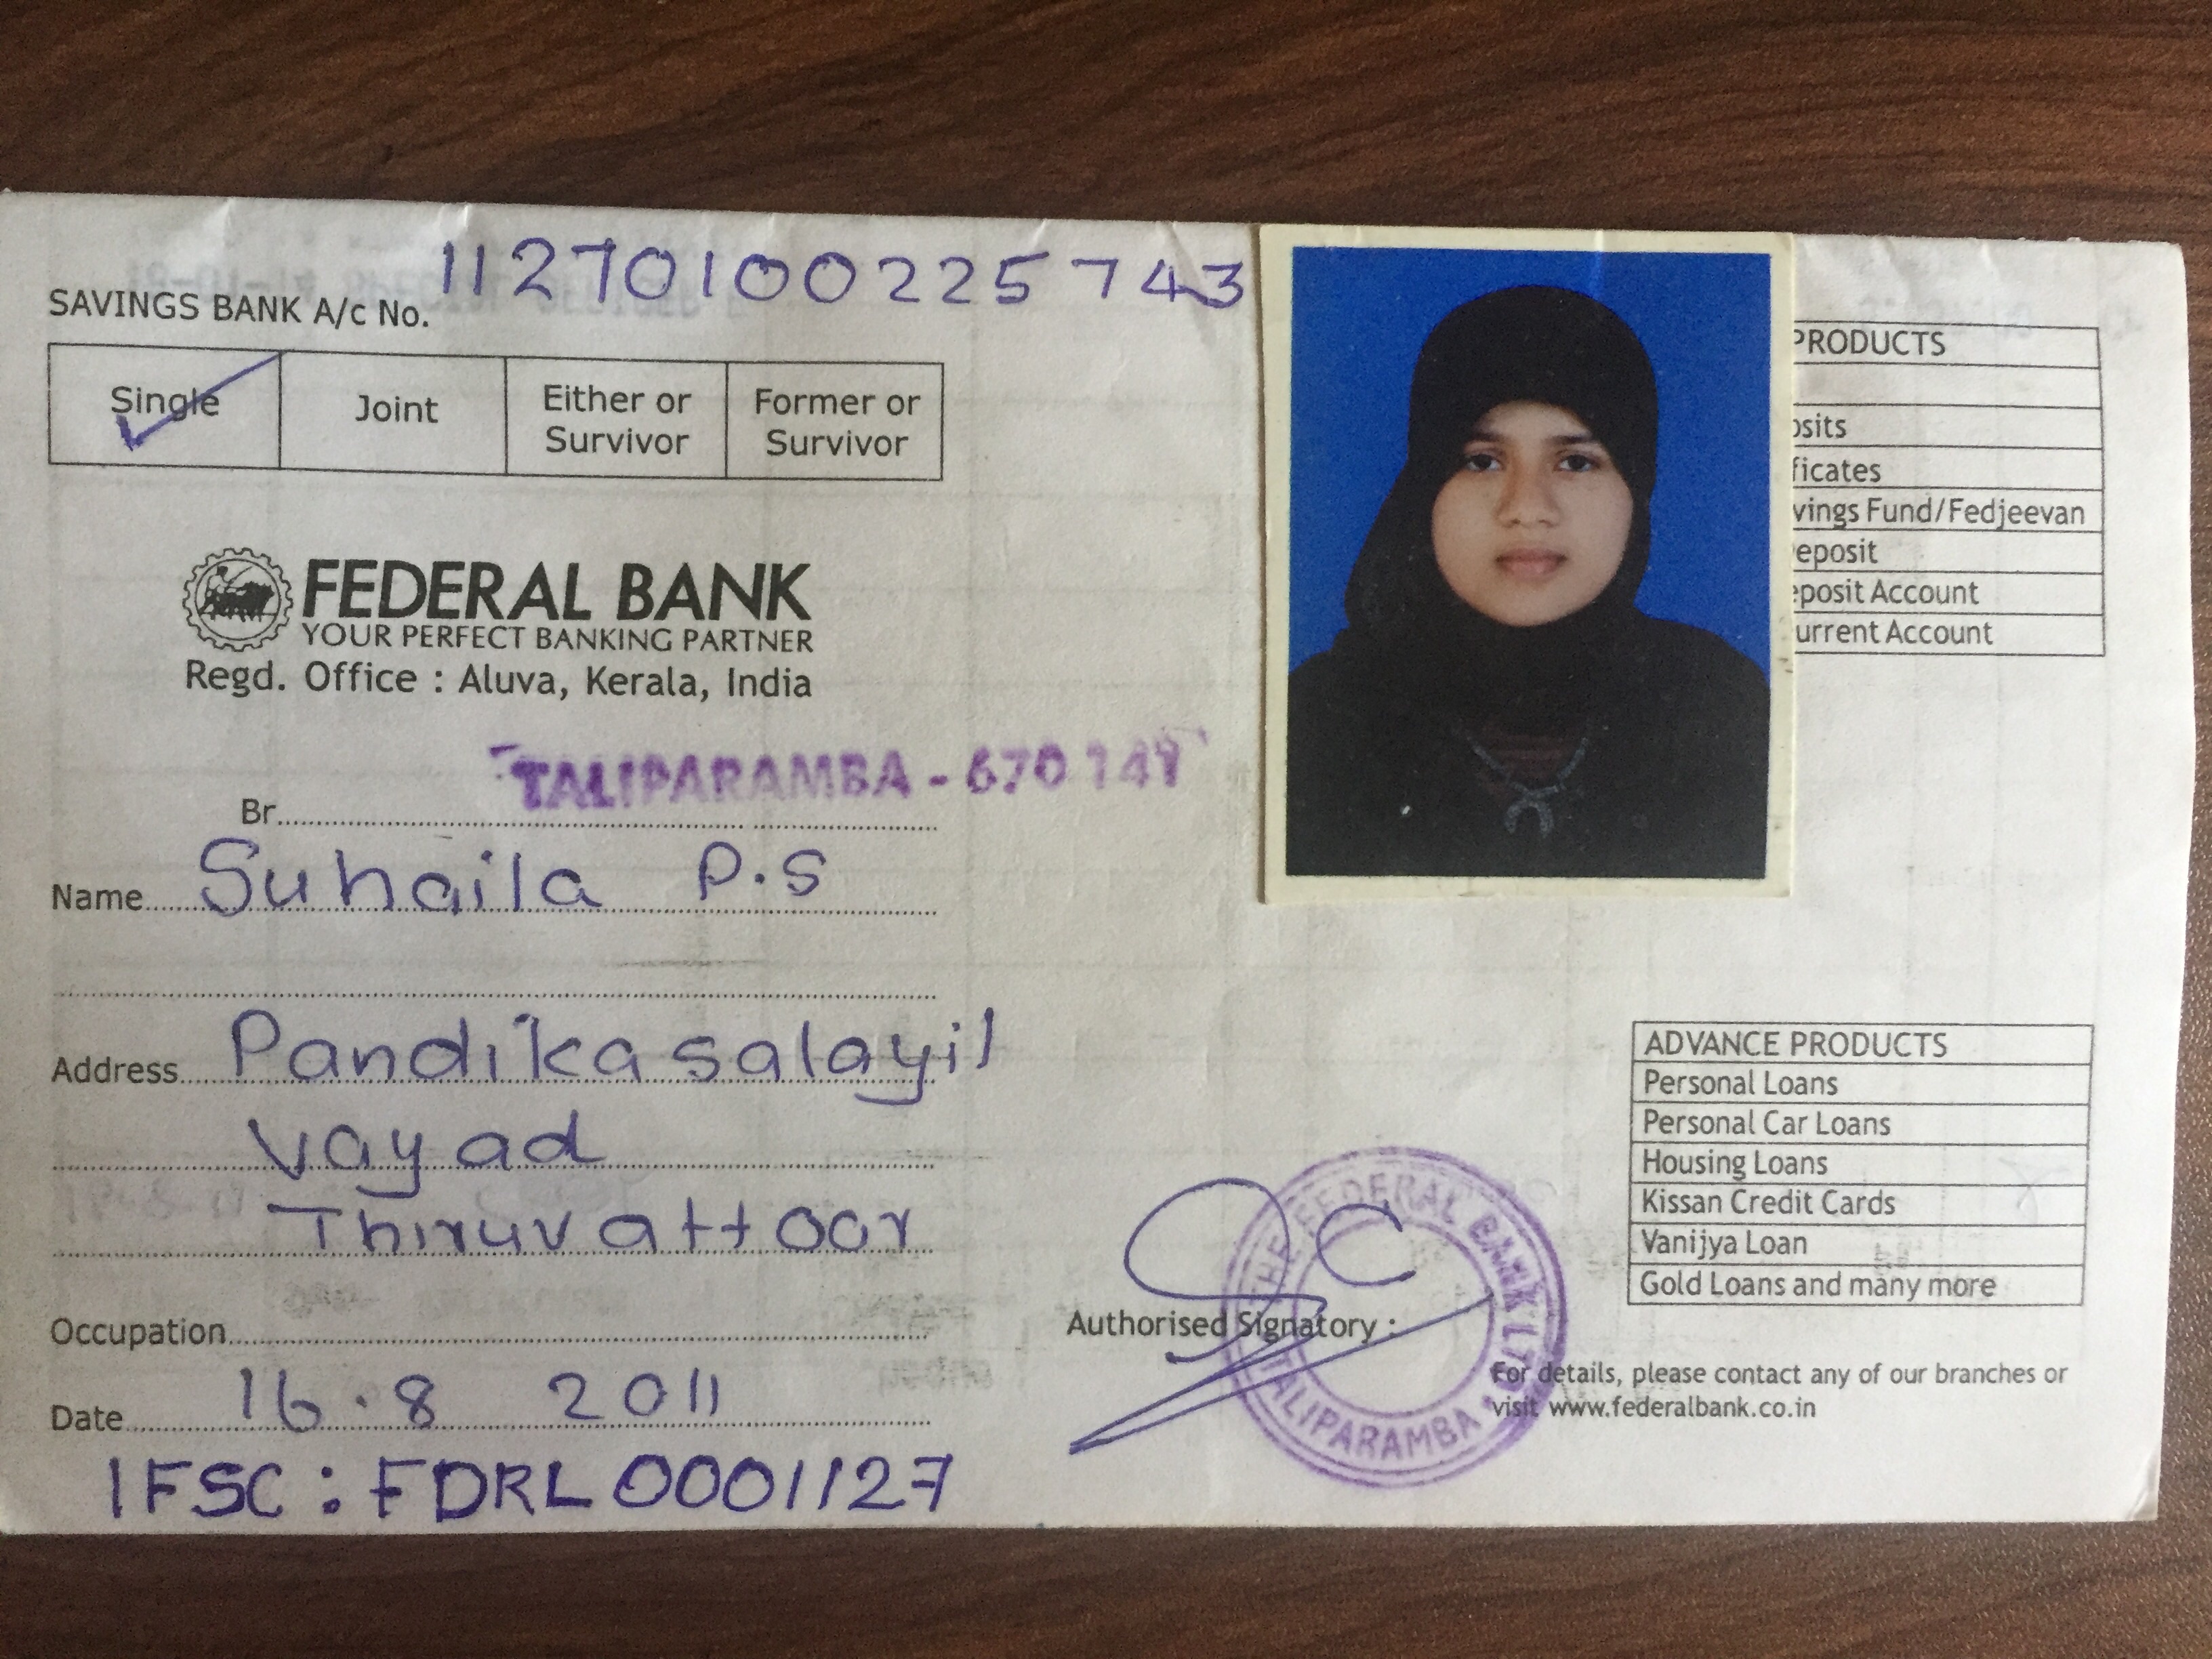 SAVINGS BANK A/c No. 11270100225743
Single Joint Either or Survivor Former or Survivor
FEDERAL BANK
YOUR PERFECT BANKING PARTNER
Regd. Office : Aluva, Kerala, India
TALIPARAMBA - 670 141
Br
Name Suhaila P.S
Address Pandikasalayil
Vayad
Thiruvattoor
Occupation
Date 16.8 2011
IFSC : FDRL0001127
Authorised Signatory :
THE FEDERAL BANK LTD
TALIPARAMBA
PRODUCTS
osits
ficates
vings Fund/Fedjeevan
eposit
eposit Account
urrent Account
ADVANCE PRODUCTS
Personal Loans
Personal Car Loans
Housing Loans
Kissan Credit Cards
Vanijya Loan
Gold Loans and many more
For details, please contact any of our branches or
visit www.federalbank.co.in